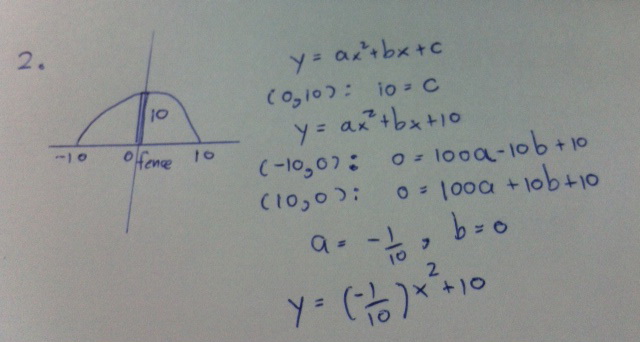 2.
10
-10 0 fence 10
y = ax²+bx+c
(0,10): 10 = c
y = ax²+bx+10
(-10,0): 0 = 100a-10b+10
(10,0): 0 = 100a+10b+10
a = -1/10, b=0
y = (-1/10)x²+10